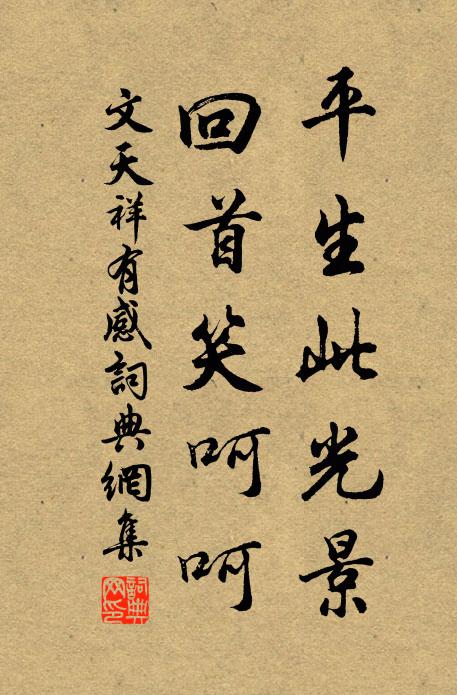 平生此光景
回首笑呵呵
文天祥有感詞典網集
詞典網印